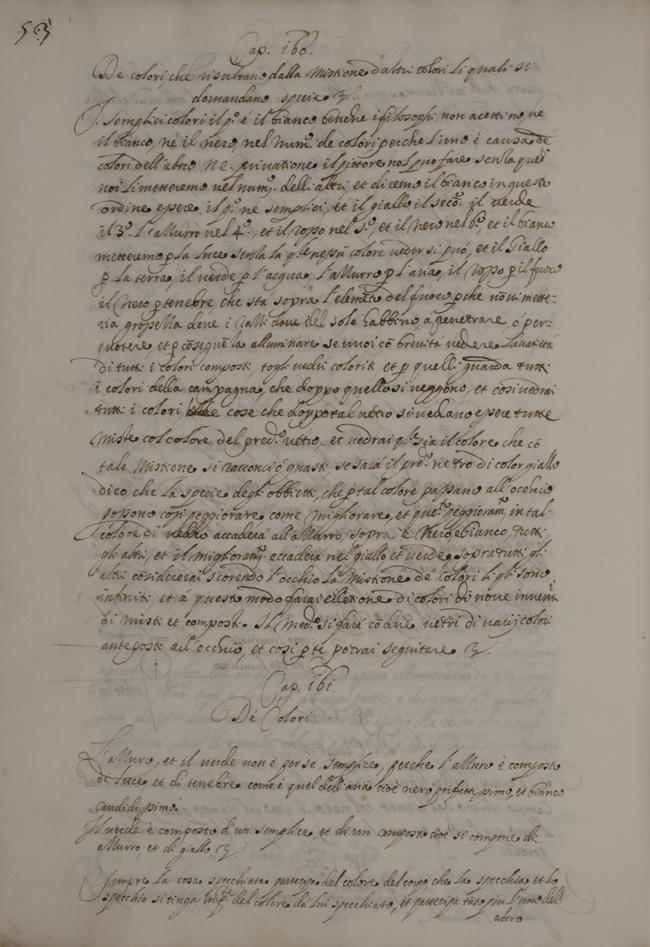 53
Cap. 160.
De colori, che risultano dalla Mistione d'altri colori li quali si
domandano specie 3.
I semplici colori il p.º é il bianco benche i filosophi non acettino, ne
il bianco, né il nero, nel num.º de colori perche l'uno è causa de
colori dell'altro Ne. privatione il pittore non puo fare senza questi
noi li metteremo nel num.º delli altri, et diremo il bianco in questo
ordine essere il p.º ne semplici, et il giallo il seco.º il verde
il 3.º l'aZurro nel 4.º, et il rosso nel 5.º, et il Nero nel 6.º, et il bianco
metteremo p la luce senza la q.le nessū colore veder si può, et il Giallo
p la terra, il verde p l'acqua, l'aZurro p l'aria, il Rosso p il fuoco
il Nero p tenebre, che sta sopra l'elemēto del fuoco, pche nō vi mette-
via grossezza dove i razzi del sole habbino à penetrare, ó per-
quotere, et p cōseguēza alluminare se vuoi cō brevità vedere la varietà
di tutti i colori composti, togli vedri coloriti et p quelli guarda tutti
i colori della campagna, che doppo quello si veggono, et cosi vedrai
tutti i colori delle cose che doppo tal vetro si vedano essere tutte
miste col colore del pred.º vetro, et vedrai q.le sia il colore, che cō
tale Mistione si racconci ó guasti se sará il pred.º vetro di color giallo
dico, che la specie degl' obbietti, che p tal colore passano all'occhio
possono cosi peggiorare come migliorare, et questo peggioram.º in tal
colore di vedro accaderá all'aZurro, sopra è Nero e bianco, tutti
gli altri, et il miglioram.º accaderá nel giallo et verde, sopra tutti gli
altri cosi dicerai scorendo l'occhio la Mistione de' colori li q.li sono
infiniti et à questo modo farai ellezione di colori di nove inventi
di misti et composti. Il med.º si fará cō due vetri di varij colori
ante posti all'occhio et cosi p te potrai seguitare 3.
Cap. 161.
De Colori
L'aZuro, et il verde non è per se semplice, perche l'aZuro è composto
di luce, et di tenebre come è quel dell'aria cioè nero perfettissimo, et bianco
candidissimo.
Il verde è composto di un semplice, et di un composto cioè si compone di
aZurro, et di giallo 3.
Sempre la cosa specchiata partecipa del colore del corpo che la specchia et lo
specchio si tinga in p.te del colore da lui specchiato, et partecipa tāto piu l'uno dell'
altro